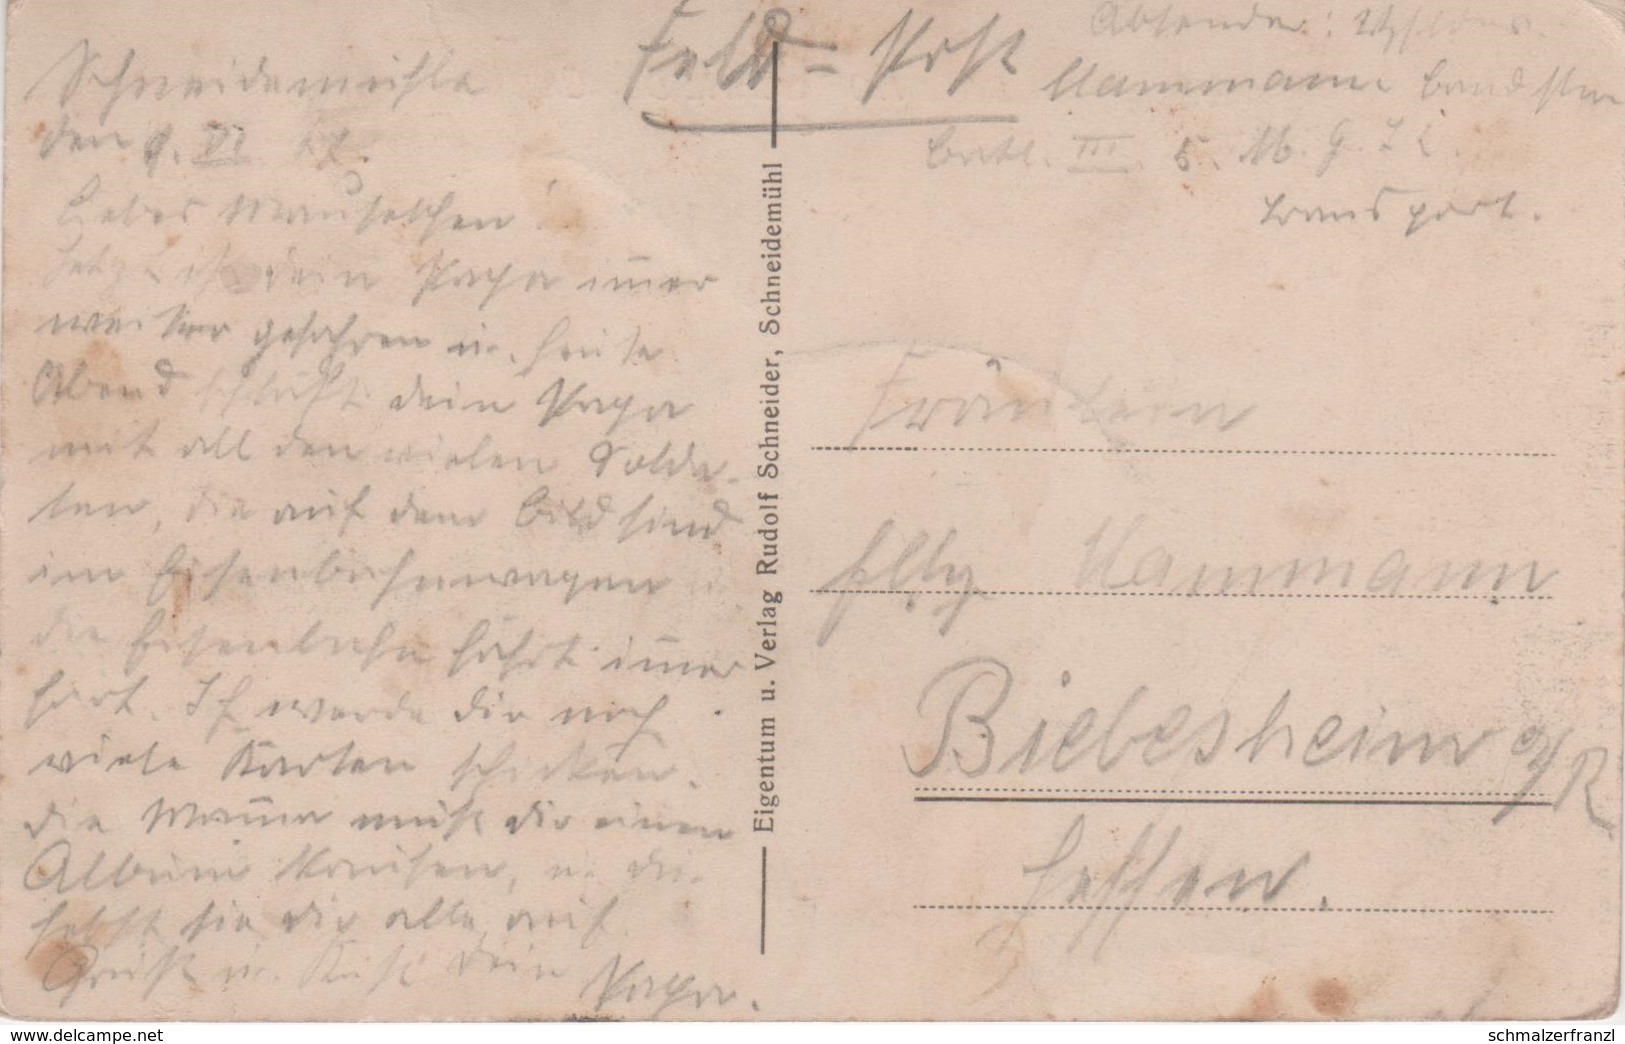 Feld=Post
Absender:
Hammann
Batl. III 5. M.G.
Transport.
Schneidemühle
den 9. VI 17.
Liebes Mauselchen!
Jetzt ist dein Papa im̅er
weiter gefahren u. heute
Abend schläft dein Papa
mit all den vielen Solda-
ten, die auf dem Bild sind
im Eisenbahnwagen u.
die Eisenbahn fährt im̅er
fort. Ich werde dir noch
viele Karten schicken.
die Mam̅a muß dir einen
Album kaufen, u. du
hebst sie dir alle auf.
Gruß u. Kuß dein Papa.
Eigentum u. Verlag Rudolf Schneider, Schneidemühl
Fräulein
Elly Hammann
Biebesheim a/R
Hessen.
delcampe.net
schmalzerfranzl